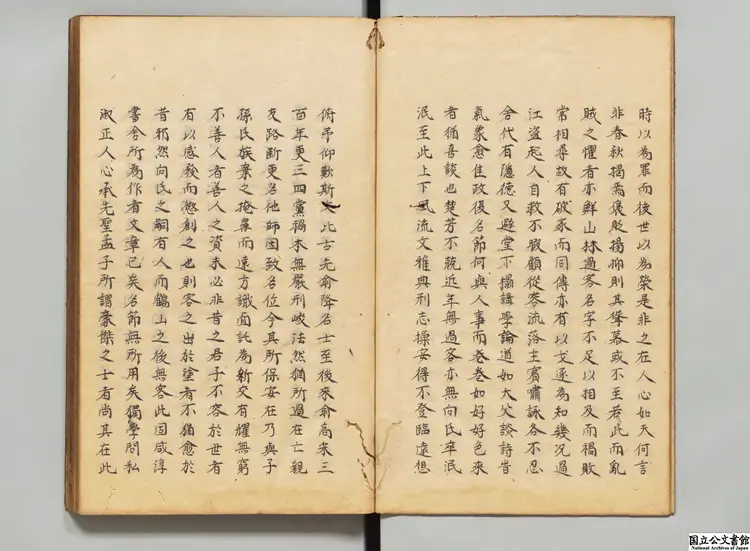 時以為罪而後世以為榮是非之在人心如天何言
非春秋揭焉褒貶揚抑則其聳慕或不至若此而亂
賊之懼者亦鮮山林過客名字不足以相及而禍敗
常相尋故有破家而同傳亦有以戈逐為知幾況過
江盜起人自救不暇顧從容流落主賓嘯詠各不忍
舍代有隱德又避堂下榻講學論道如大父談詩昔
氣象愈佳政復名節何與人事而卷卷如好好色來
者猶喜談也楚芳不競近年無過客亦無向氏卒泯
泯至此上下風流文雅典刑志操安得不登臨遠想
俯予仰歎斯文比古先俞降名士至後來俞高末三
百年更三四黨禍本無嚴刑峻法然猶所過在亡親
友路斷更名他師因致名位今其所保安在乃與子
孫氏族棄之掩鼻而遠方識面託為新交有耀無窮
不善人者善人之資未必非昔之君子不容於世者
有以感發而懲創之也則客之出於塗者不猶愈於
昔邪然向氏之嗣有人而鶴山之後無客此因咸淳
書舍所為作者文章已矣名節無所用矣獨學問私
淑正人心承先聖孟子所謂豪傑之士者尚其在此
国立公文書館
National Archives of Japan